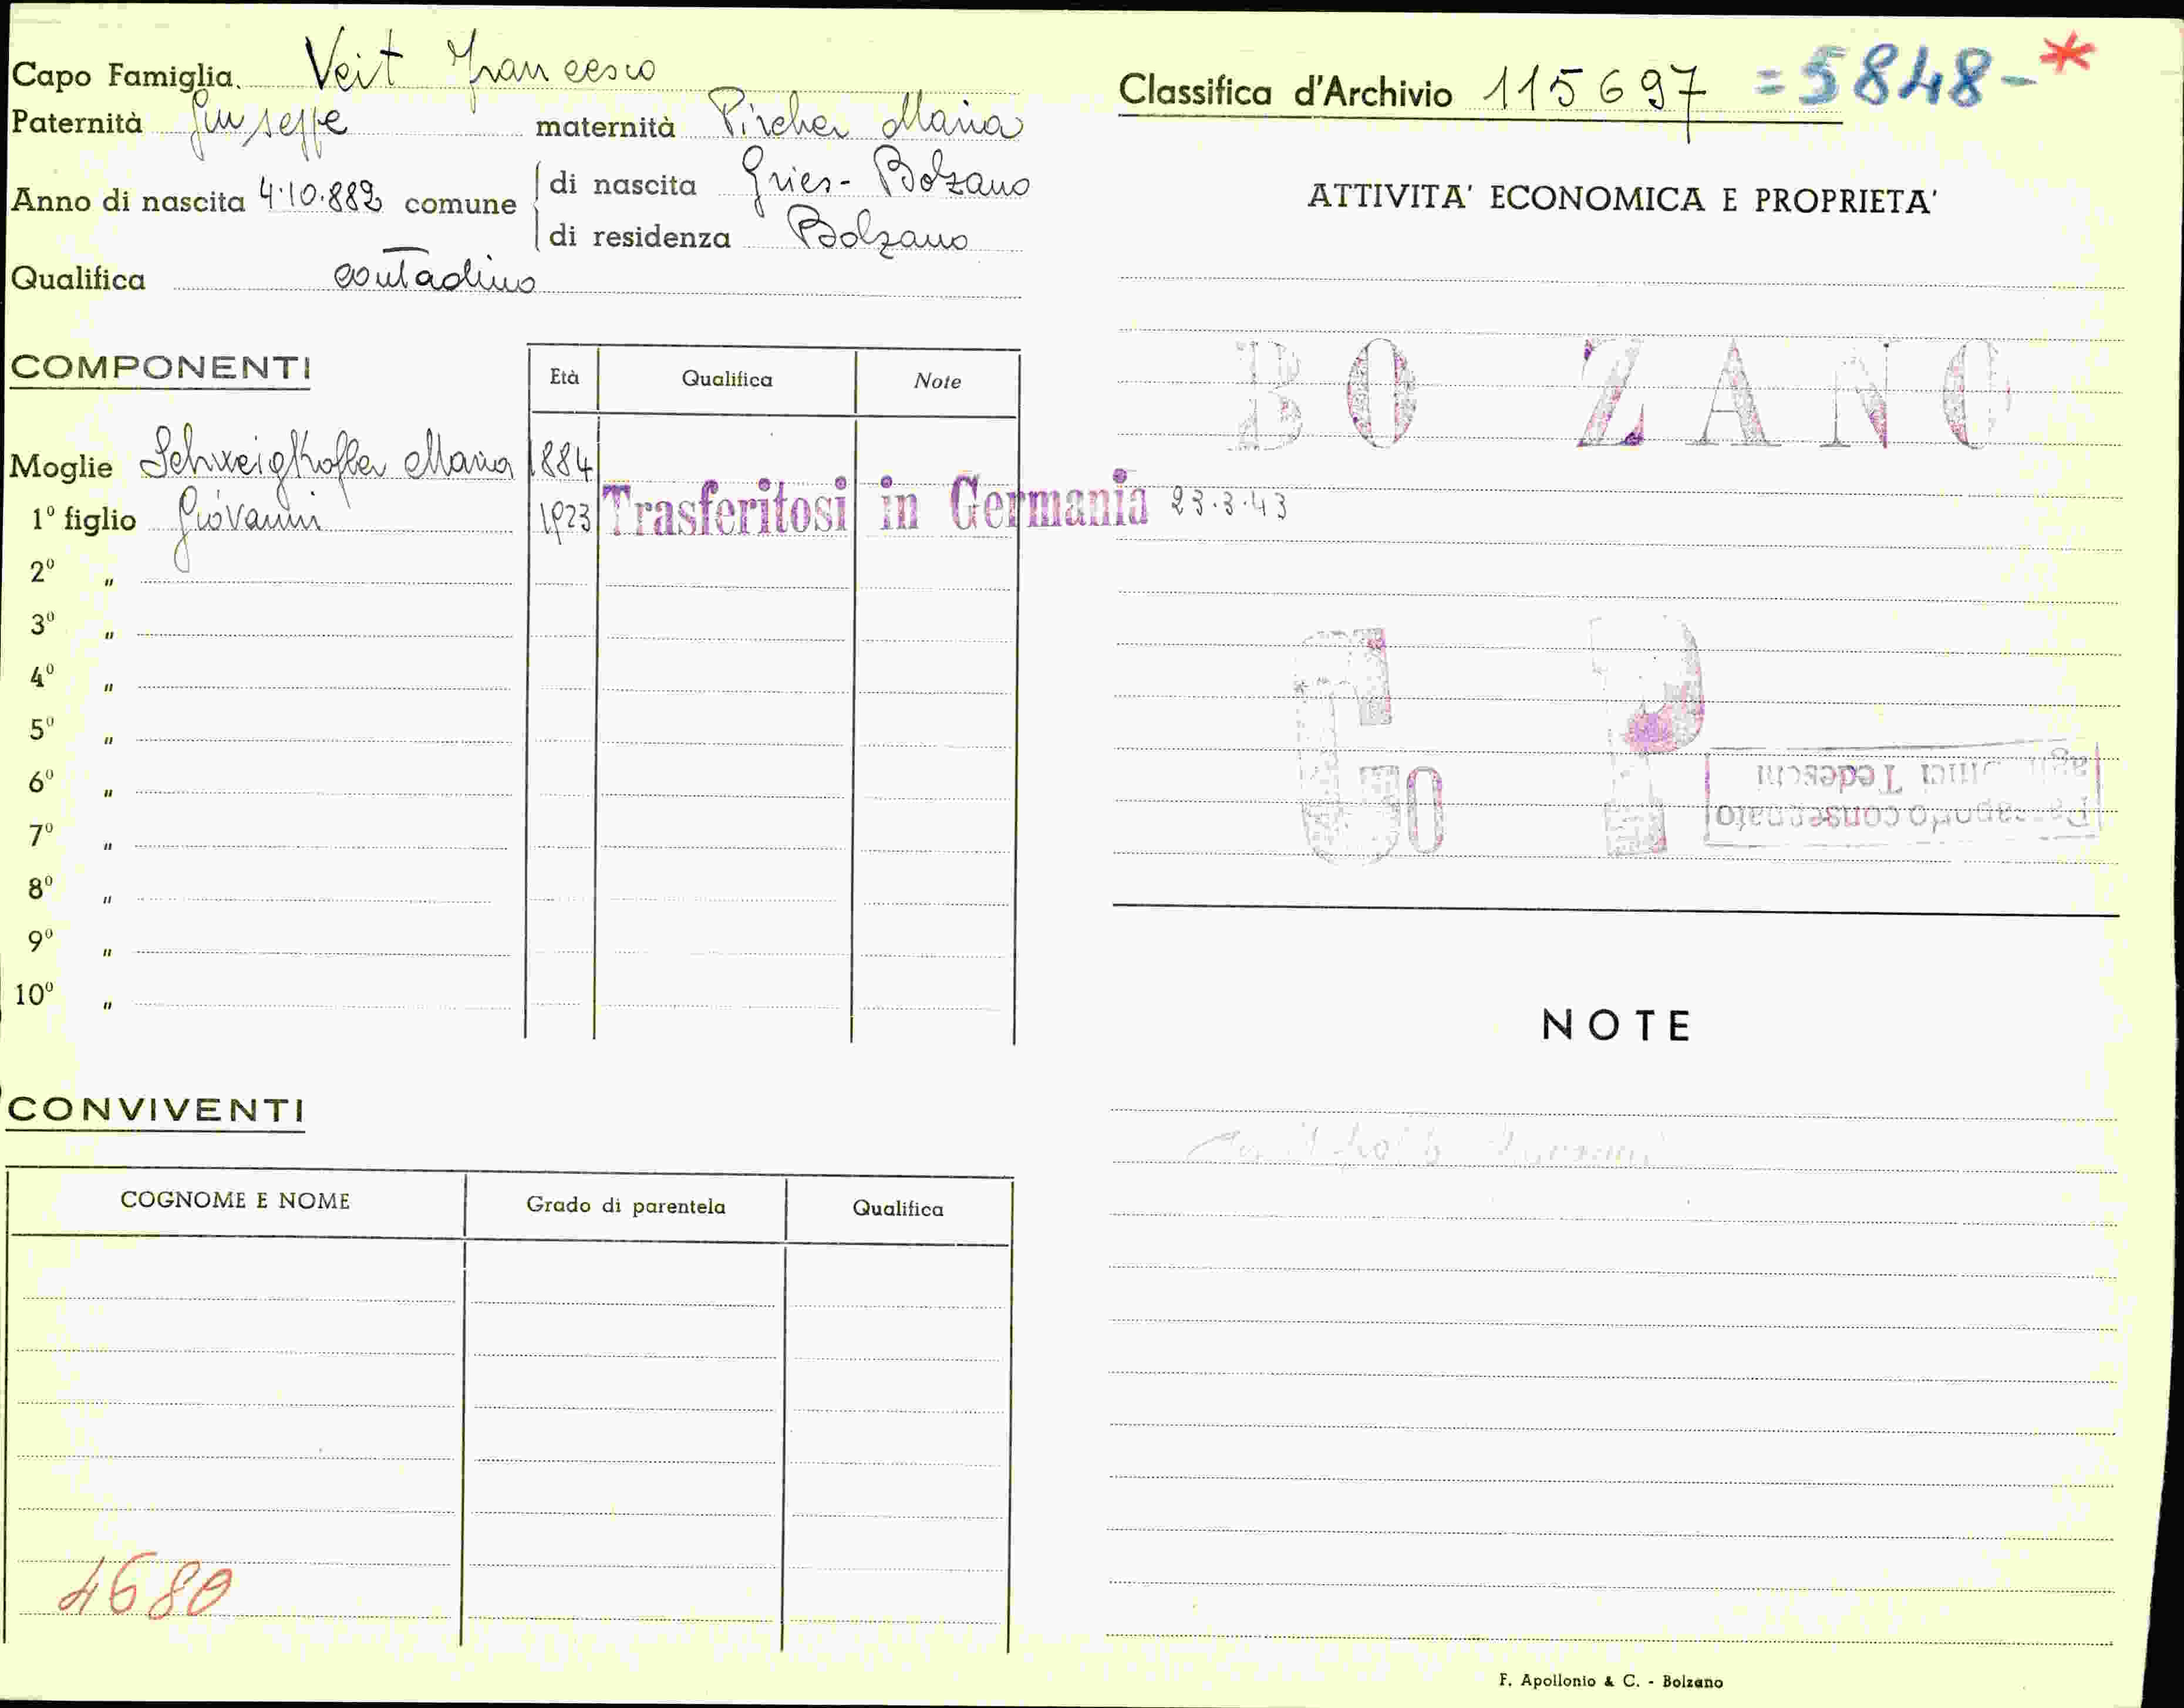 Capo Famiglia. Veit Francesco
Paternità Giuseppe maternità Pircher Maria
Anno di nascita 4.10.882 comune di nascita Gries - Bolzano
di residenza Bolzano
Qualifica contadino
COMPONENTI
Età Qualifica Note
Moglie Schweigkofler Maria 1884
1º figlio Giovanni 1923 Trasferitosi in Germania 23.3.43
2º "
3º "
4º "
5º "
6º "
7º "
8º "
9º "
10º "
CONVIVENTI
COGNOME E NOME Grado di parentela Qualifica
4680
Classifica d'Archivio 115697 = 5848-*
ATTIVITA' ECONOMICA E PROPRIETA'
BO ZANO
Passaporto consegnato
agli Uffici Tedeschi
NOTE
F. Apollonio & C. - Bolzano